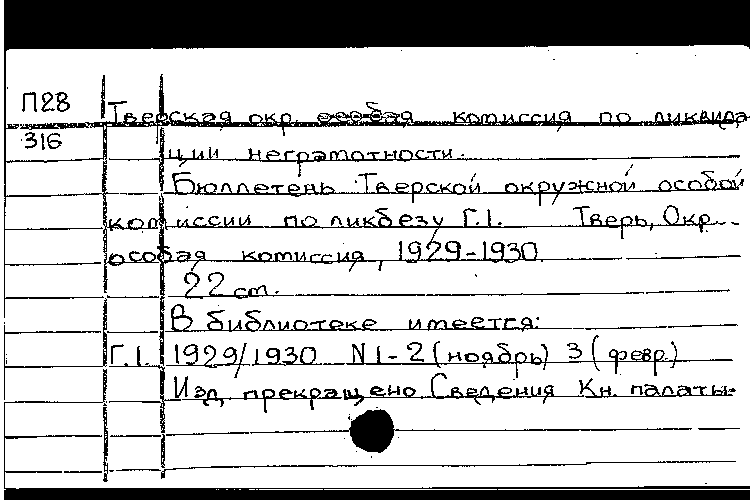 П28
Тверская окр. особая комиссия по ликвида-
316
ции неграмотности.
Бюллетень Тверской окружной особой
комиссии по ликбезу Г.1. Тверь, Окр.
особая комиссия, 1929-1930
22 cm.
В библиотеке имеется:
Г.1. 1929/1930 N1-2 (ноябрь) 3 (февр.)
Изд. прекращено Сведения Кн. палаты.